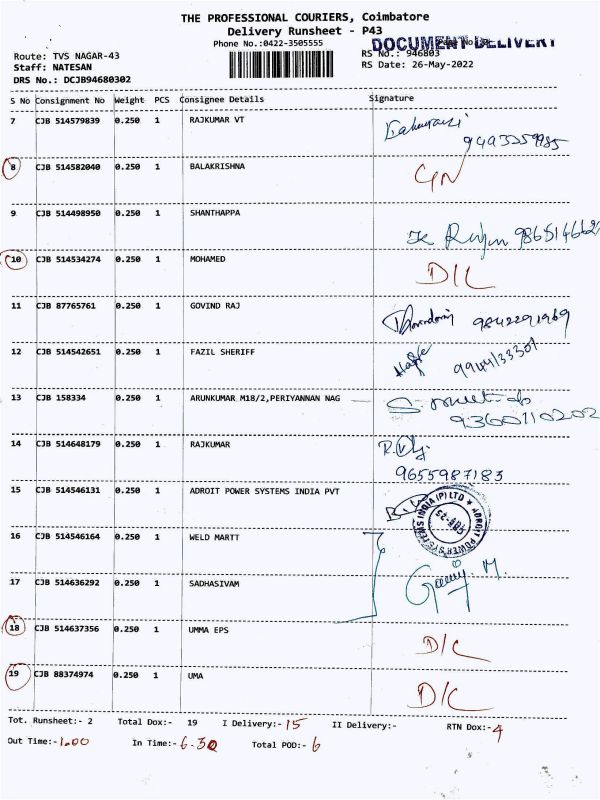 THE PROFESSIONAL COURIERS, Coimbatore
Delivery Runsheet - P43
Phone No.:0422-3505555
DOCUMENT DELIVERY
Route: TVS NAGAR-43
RS No.: 946803
Staff: NATESAN
RS Date: 26-May-2022
DRS No.: DCJB94680302
S No Consignment No Weight PCS Consignee Details Signature
7 CJB 514579839 0.250 1 RAJKUMAR VT
9493259985
8 CJB 514582040 0.250 1 BALAKRISHNA
9 CJB 514498950 0.250 1 SHANTHAPPA
10 CJB 514534274 0.250 1 MOHAMED D/L
11 CJB 87765761 0.250 1 GOVIND RAJ 9842291969
12 CJB 514542651 0.250 1 FAZIL SHERIFF 9944133301
13 CJB 158334 0.250 1 ARUNKUMAR M18/2,PERIYANNAN NAG
9360110202
14 CJB 514648179 0.250 1 RAJKUMAR
9655987183
15 CJB 514546131 0.250 1 ADROIT POWER SYSTEMS INDIA PVT
ADROIT POWER SYSTEMS INDIA (P) LTD
16 CJB 514546164 0.250 1 WELD MARTT
17 CJB 514636292 0.250 1 SADHASIVAM
18 CJB 514637356 0.250 1 UMMA EPS D/C
19 CJB 88374974 0.250 1 UMA D/C
Tot. Runsheet:- 2 Total Dox:- 19 I Delivery:- 15 II Delivery:- RTN Dox:- 4
Out Time:- 1.00 In Time:- 6.30 Total POD:- 6